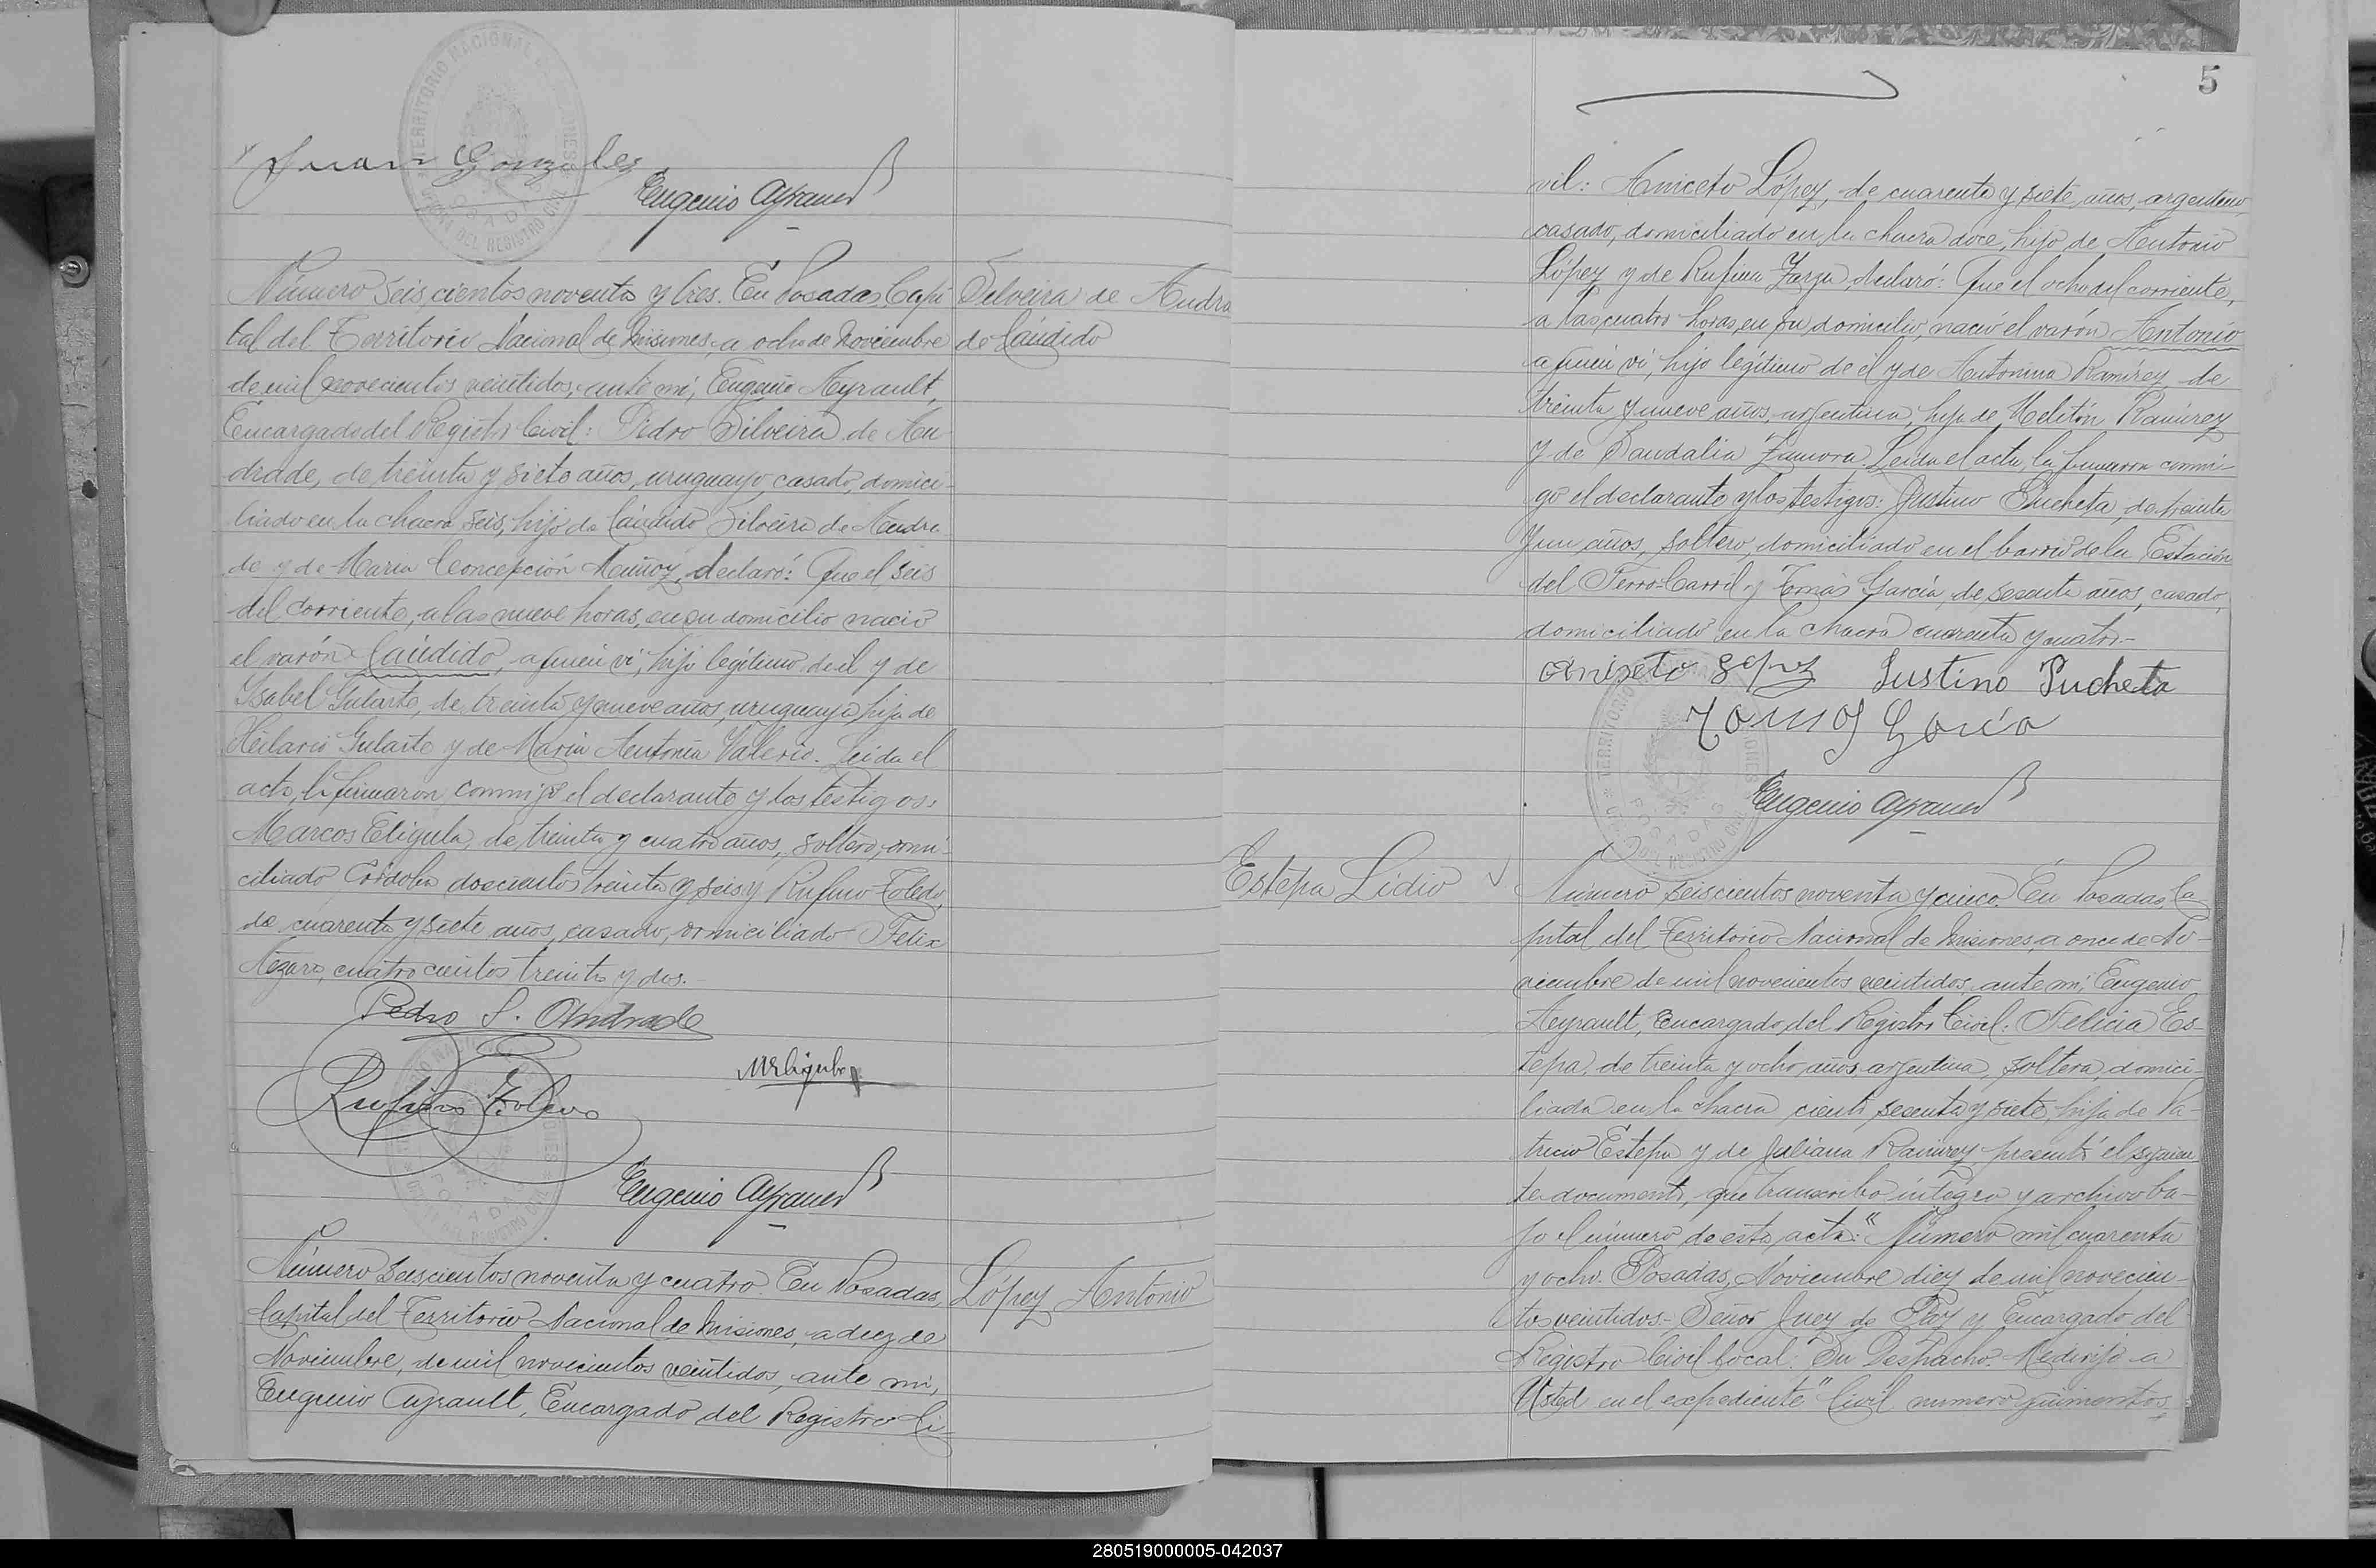 Juan Gonzalez
Eugenio Ayrault
Número seiscientos noventa y tres. En Posadas, Capi
tal del Territorio Nacional de Misiones, a ocho de Noviembre
de mil novecientos veintidos, ante mí, Eugenio Ayrault,
Encargado del Registro Civil: Pedro Silveira de An
drade, de treinta y siete años, uruguayo, casado, domici-
liado en la chacra seis, hijo de Cándido Silveira de Andra
de y de María Concepción Muñoz, declaró: Que el seis
del corriente, a las nueve horas, en su domicilio nació
el varón Cándido, a quien vi, hijo legítimo de él y de
Isabel Gularte, de treinta y nueve años, uruguaya, hija de
Hilario Gularte y de María Antonia Valerio. Leida el
acta, la firmaron conmigo el declarante y los testigos:
Marcos Eligula, de treinta y cuatro años, soltero, domi-
ciliado Córdoba doscientos treinta y seis y Rufino Toledo,
de cuarenta y siete años, casado, domiciliado Felix
Azara, cuatrocientos treinta y dos.-
Pedro S. Andrade
MEligula
Rufino Toledo
Eugenio Ayrault
Número seiscientos noventa y cuatro. En Posadas,
Capital del Territorio Nacional de Misiones, a diez de
Noviembre, de mil novecientos veintidos, ante mí,
Eugenio Ayrault, Encargado del Registro Ci-
Silveira de Andra
de Cándido
López Antonio
5
vil: Aniceto López, de cuarenta y siete años, argentino,
casado, domiciliado en la chacra doce, hijo de Antonio
López y de Rufina Zarza, declaró: Que el ocho del corriente,
a las cuatro horas, en su domicilio, nació el varón Antonio
a quien vi, hijo legítimo de él y de Antonina Ramírez, de
treinta y nueve años, argentina, hija de Melitón Ramírez
y de Sandalia Zamora. Leida el acta, la firmaron conmi-
go el declarante y los testigos: Justino Pucheta, de treinta
y un años, soltero, domiciliado en el barrio de la Estación
del Ferro-Carril y Tomás García, de sesenta años, casado,
domiciliado en la chacra cuarenta y cuatro.-
Aniseto Lopez Justino Pucheta
Tomas Garcia
Eugenio Ayrault
Estepa Lidio
Número seiscientos noventa y cinco. En Posadas, Ca
pital del Territorio Nacional de Misiones, a once de No-
viembre de mil novecientos veintidos, ante mí, Eugenio
Ayrault, Encargado del Registro Civil: Felicia Es-
tepa, de treinta y ocho años, argentina, soltera, domici-
liada en la chacra ciento sesenta y siete, hija de Pa-
tricio Estepa y de Juliana Ramírez presentó el siguien
te documento, que transcribo íntegro y archivo ba-
jo el número de esta acta: "Número mil cuarenta
y ocho. Posadas, Noviembre diez de mil novecien-
tos veintidos.- Señor Juez de Paz y Encargado del
Registro Civil local. Su Despacho. Me dirijo a
Usted en el expediente "Civil" numero quinientos
280519000005-042037